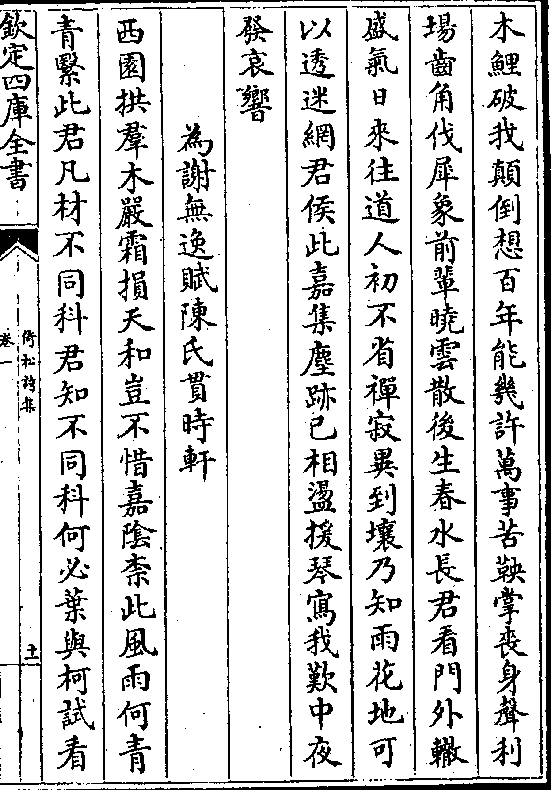 木鯉破我顛倒想百年能幾許萬事苦鞅掌喪身聲利
場齒角伐犀象前輩曉雲散後生春水長君看門外轍
盛氣日來往道人初不省禪寂異到壤乃知雨花地可
以透迷網君侯此嘉集塵跡已相盪援琴寫我歎中夜
發哀響
為謝無逸賦陳氏貫時軒
西園拱羣木嚴霜損天和豈不惜嘉陰柰此風雨何青
青繄此君凡材不同科君知不同科何必葉與柯試看
欽定四庫全書
倚松詩集
卷一
十一